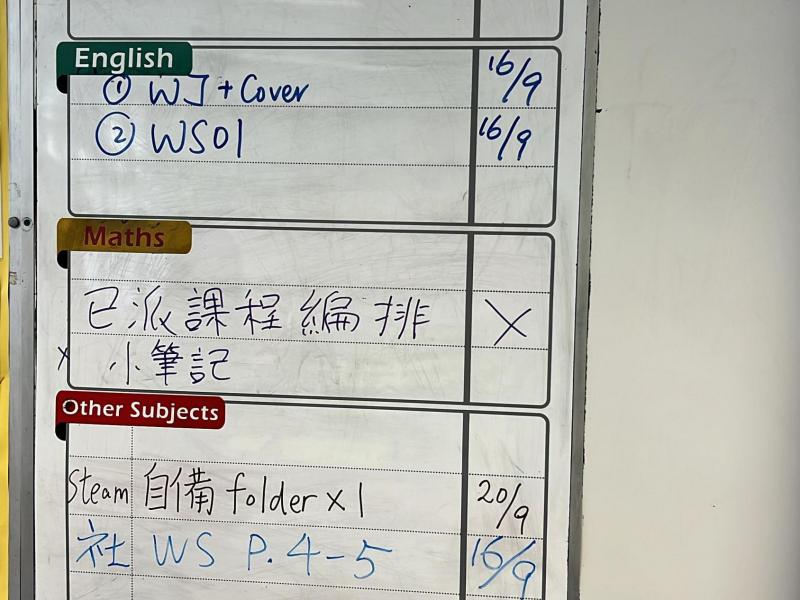 English
① WJ + Cover 16/9
② WS01 16/9
Maths
已派課程編排 X
x 小筆記
Other Subjects
Steam 自備 folder x 1 20/9
社 WS P. 4-5 16/9